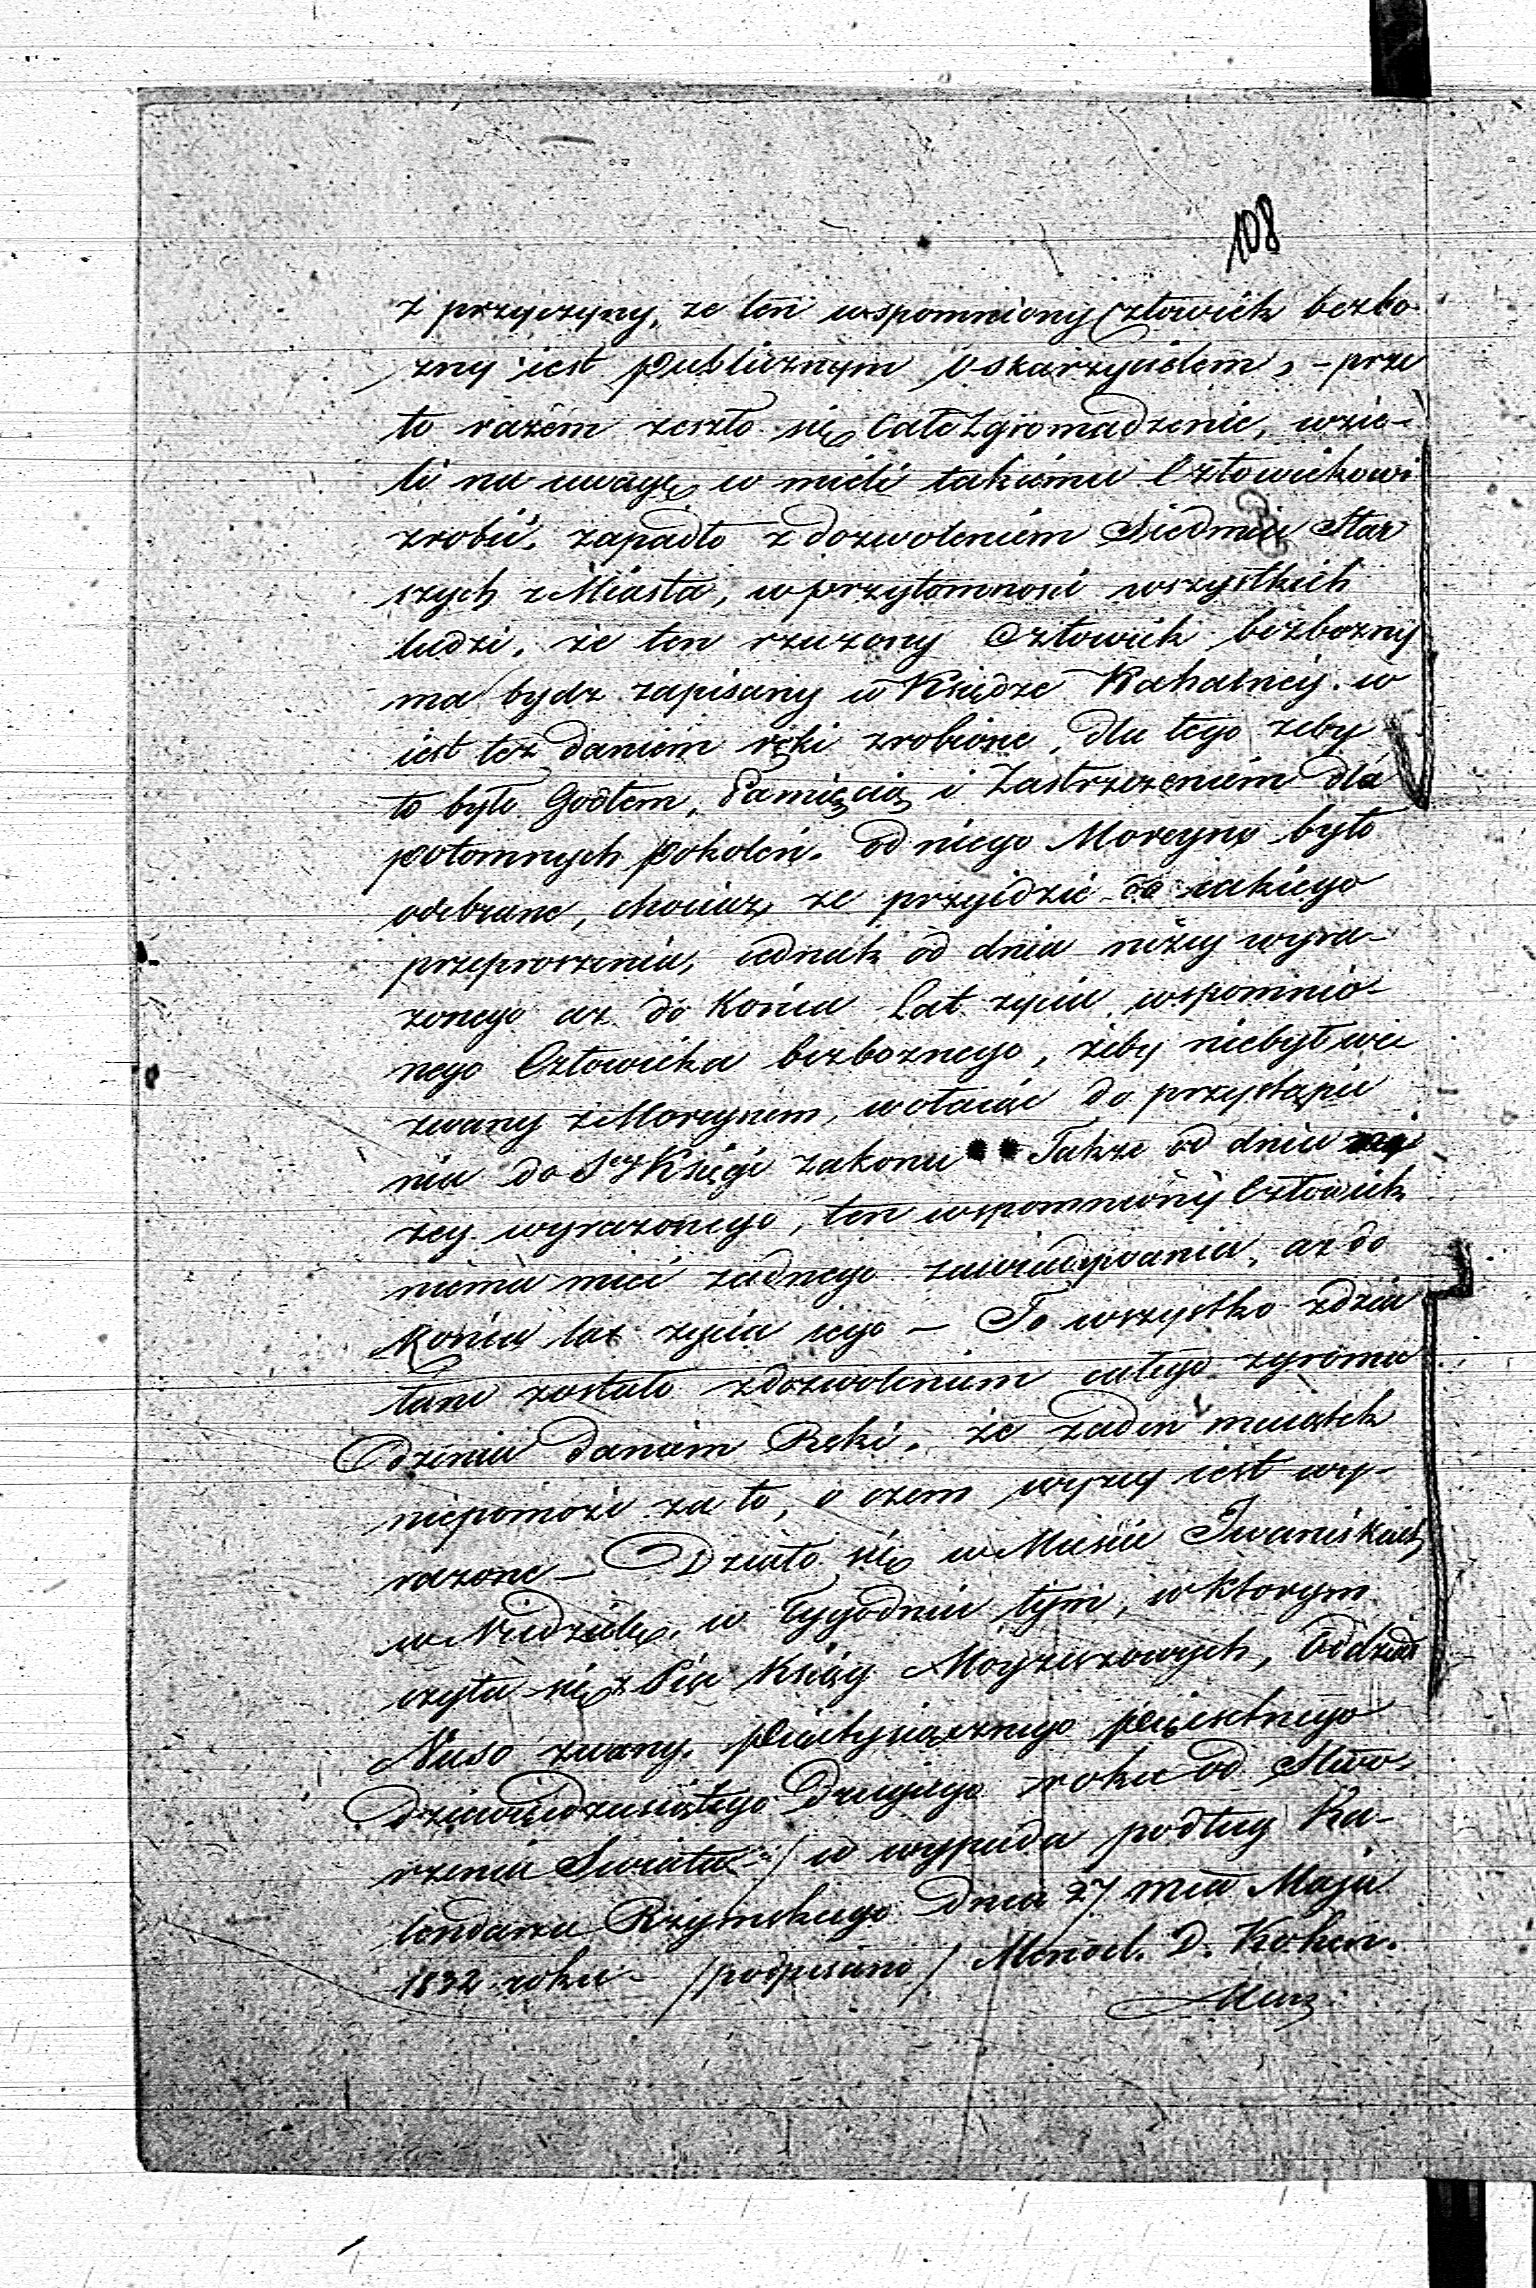 108
z przyczyny, ze ten wspomniony Człowiek bezbo
zny iest publicznym Oskarzycielem, - prze
to razem zeszło się Całe Zgromadzenie, wzie-
li na uwagę, w mieli takiemu Człowiekowi
zrobić, zapadło z dozwoleniem Siedmiu Star
szych z Miasta, w przytomności wszystkich
ludzi, że ten rzeczony Człowiek bezbozny
ma bydz zapisany w Księdze Kahalney. w
iest też daniem ręki zrobione, dla tego zeby
to było Godłem, Pamięcią i Zastrzezeniem dla
potomnych pokoleń. od niego Moreyne było
odebrane, chociaz ze przyidzie do iakiego
przeproszenia, iednak od dnia niżey wyra-
zonego az do Końca Lat zycia, wspomnio-
nego Człowieka bezboznego, żeby niebył wię
zwany z Moreynem, wołaiąc do przystąpie
nia do Stey Księgi zakonu Takze od dnia
zey wyrazonego, ten wspomniony Człowiek
niema mieć zadnego zawiadywania, az do
Końca lat zycia iego - To wszystko zdzia
łane zostało z dozwoleniem całego zgroma
dzenia daniem Ręki, że zaden maiątek
niepomoże za to, o czem wyzey iest wy-
razone - Działo się w Mieście Iwaniskach
w Niedzielę, w Tygodniu tym, w którym
czyta się z Pię Ksiąg Moyzeszowych, Oddział
Nuso zwany, pięciotysiącznego pięćsetnego
Dziewiędziesiątego Drugiego roku od Stwo-
rzenia Swiata / w wypada podług Ka-
lendarza Rzymskiego Dnia 27 Mca Maja
1832 roku - /podpisano/ Mendel. D. Kohen.